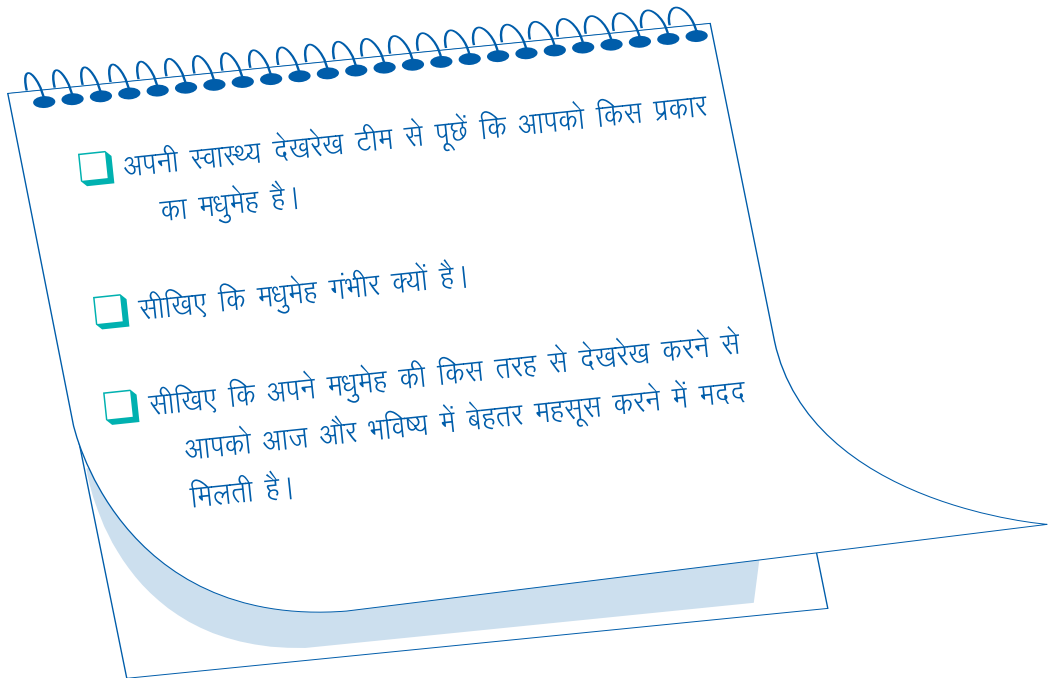 अपनी स्वास्थ्य देखरेख टीम से पूछें कि आपको किस प्रकार
का मधुमेह है।
सीखिए कि मधुमेह गंभीर क्यों है।
सीखिए कि अपने मधुमेह की किस तरह से देखरेख करने से
आपको आज और भविष्य में बेहतर महसूस करने में मदद
मिलती है।